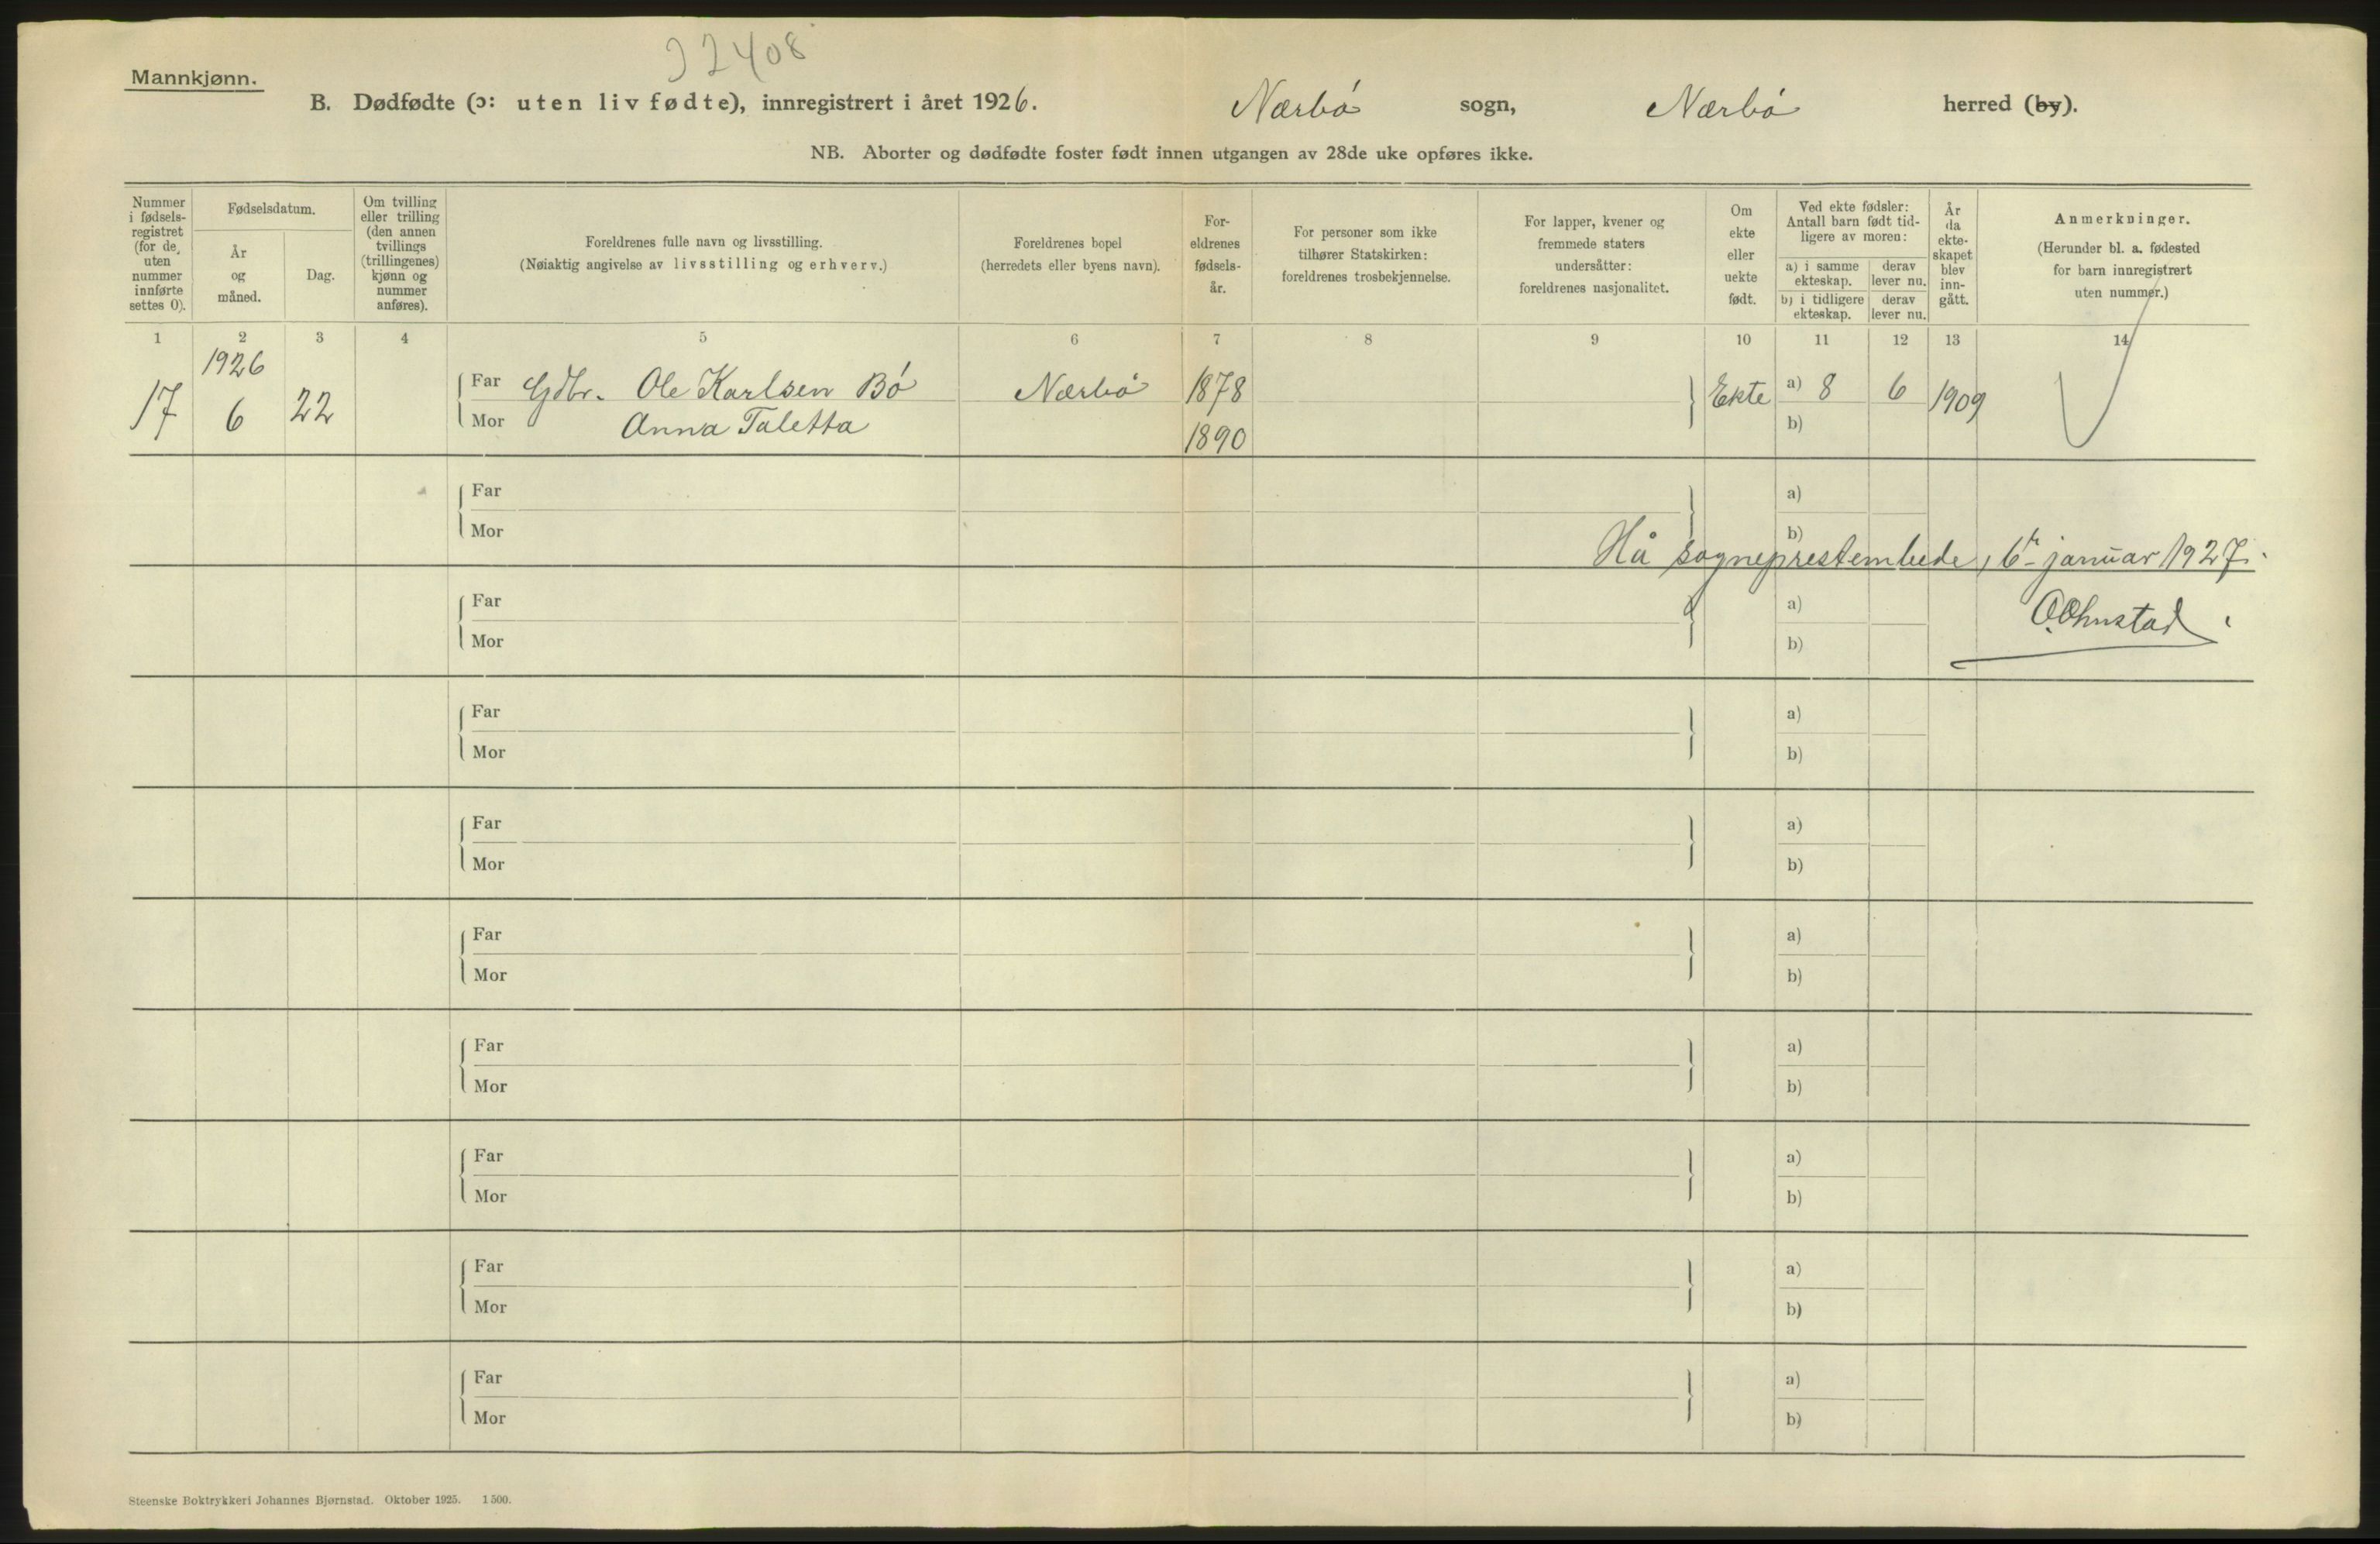 32408
Mannkjønn.
B. Dødfødte (ɔ: uten liv fødte), innregistrert i året 1926. Nærbó sogn, Nærbó herred (by).
NB. Aborter og dødfødte foster født innen utgangen av 28de uke opføres ikke.
Nummer
i fødsels-
registret
(for de,
uten
nummer
innførte
settes 0).
Fødselsdatum.
År
og
måned.
Dag.
Om tvilling
eller trilling
(den annen
tvillings
(trillingenes)
kjønn og
nummer
anføres).
Foreldrenes fulle navn og livsstilling.
(Nøiaktig angivelse av livsstilling og erhverv.)
Foreldrenes bopel
(herredets eller byens navn).
For-
eldrenes
fødsels-
år.
For personer som ikke
tilhører Statskirken:
foreldrenes trosbekjennelse.
For lapper, kvener og
fremmede staters
undersåtter:
foreldrenes nasjonalitet.
Om
ekte
eller
uekte
født.
Ved ekte fødsler:
Antall barn født tid-
ligere av moren:
a) i samme
ekteskap.
derav
lever nu.
b) i tidligere
ekteskap.
derav
lever nu.
År
da
ekte-
skapet
blev
inn-
gått.
Anmerkninger.
(Herunder bl. a. fødested
for barn innregistrert
uten nummer.)
1 2 3 4 5 6 7 8 9 10 11 12 13 14
1926
17 6 22 Far Gdbr. Ole Karlsen Bó Nærbó 1878 Ekte a) 8 6 1909
Mor Anna Taletta 1890 b)
Far a)
Mor b)
Hå sogneprestembede, 6te januar 1927.
Far a) O. Ohnstad.
Mor b)
Far a)
Mor b)
Far a)
Mor b)
Far a)
Mor b)
Far a)
Mor b)
Far a)
Mor b)
Far a)
Mor b)
Far a)
Mor b)
Steenske Boktrykkeri Johannes Bjørnstad. Oktober 1925. 1500.